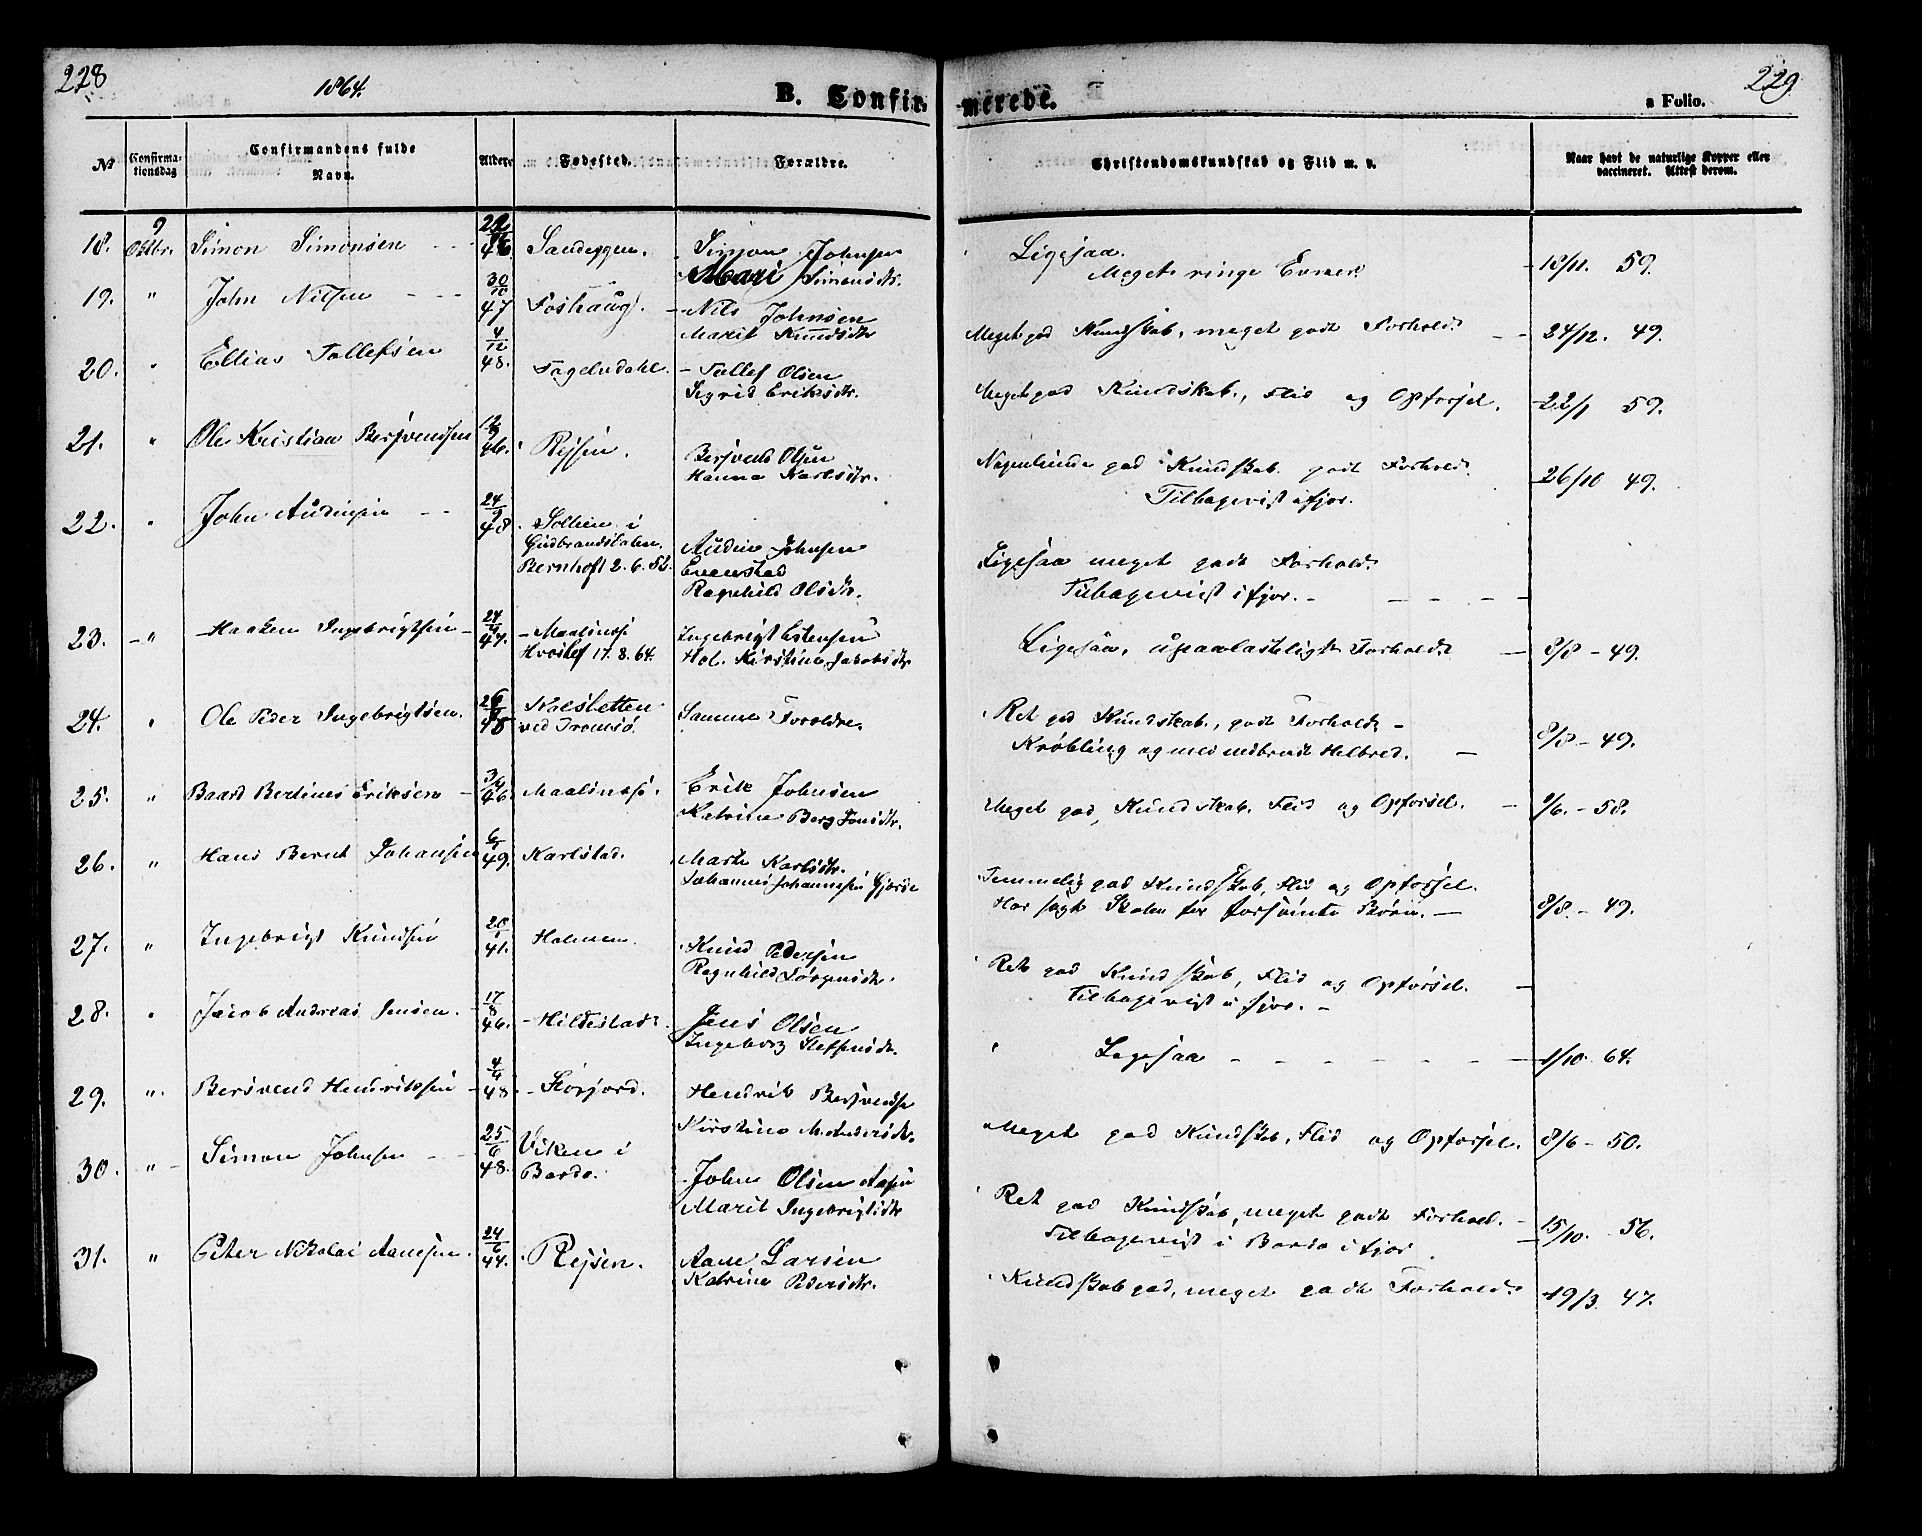 228
1864.
B. Confir-
№ Confirma-tionsdag Confirmandens fulde Navn. Alder. Fødested. Forældre.
18. 9 Oktbr. Simon Simonsen 46 Sandeggen. Simon Johnsen
Mari Simonsdtr.
19. " John Nilsen 30/10 47 Foshaug. Nils Johnsen
Marit Knudsdtr
20. " Ellias Tollefsen 4/12 48. Fageludahl. Tollef Olsen
Sigrid Eriksdtr.
21. " Ole Kristian Bersvendsen 46. Rejsen. Bersvend Olsen
Hanna Karlsdtr.
22. " John Audensen 24/9 48. Sollien i
Gudbrandsdalen.
Bernhoft 2.6.52. Auden Johnsen
Evenstad
Ragnhild Olsdtr.
23. " Haaken Ingebrigtsen 24/4 47. Maalsnæs
Hvoslef 17.8.64. Ingebrigt Estensen
Hol. Kirstine Jakobsdtr
24. " Ole Peder Ingebrigtsen. 48 Kalsletten
ved Tromsö. Samme Foreldre.
25. " Baard Bertinus Eriksen 46. Maalsnæs. Erik Johnsen
Katrine Berg Jonsdtr.
26. " Hans Bernt Johansen 49. Karlstad. Marte Karlsdtr.
Johannes Johannesen Gjerde
27. " Ingebrigt Knudsen 41. Holmen. Knud Pedersen
Ragnhild Jörgensdtr.
28. " Jacob Andreas Jensen. 17/8 46. Hildestad. Jens Olsen
Ingeborg Steffensdtr.
29. " Bersvend Hendriksen 4/4 48. Storjord. Hendrik Bersvendsen
Kirstine M. Andersdtr.
30. " Simon Johnsen 25/6 48. Viken i
Bardo. John Olsen Aasen
Marit Ingebrigtsdtr
31. " Peter Nikolai Aanesen. 24/6 44. Rejsen. Aane Larsen
Katrine Pedersdtr.
229
merede.
a Folio.
Christendomskundskab og Flid m. v. Naar havt de naturlige Kopper eller vaccineret. Attest derom.
Ligesaa.
Meget ringe Evner. 18/11. 59.
Meget god Kundskab, meget godt Forhold. 24/12. 49.
Meget god Kundskab, Flid og Opförsel. 22/1 59.
Nogenlunde god Kundskab godt Forhold.
Tilbagevist ifjor. 26/10 49.
Ligesaa meget godt Forhold.
Tilbagevist i fjor.
Ligesaa, upaaklageligt Forhold. 8/8 - 49.
Ret god Kundskab, godt Forhold
Kröbling og med nedbrudt Helbred. 8/8 - 49.
Meget god Kundskab, Flid og Opförsel. 9/6. - 58.
Temmelig god Kundskab, Flid og Opförsel.
Har sögt Skolen for forsömte Börn. 8/8. - 49.
Ret god Kundskab, Flid og Opförsel.
Tilbagevist i fjor.
Ligesaa 1/10 - 64.
Meget god Kundskab, Flid og Opförsel. 8/6 - 50.
Ret god Kundskab, meget godt Forhold.
Tilbagevist i Bardo i fjor. 15/10. 56.
Kundskab god, meget godt Forhold. 19/3. 47.